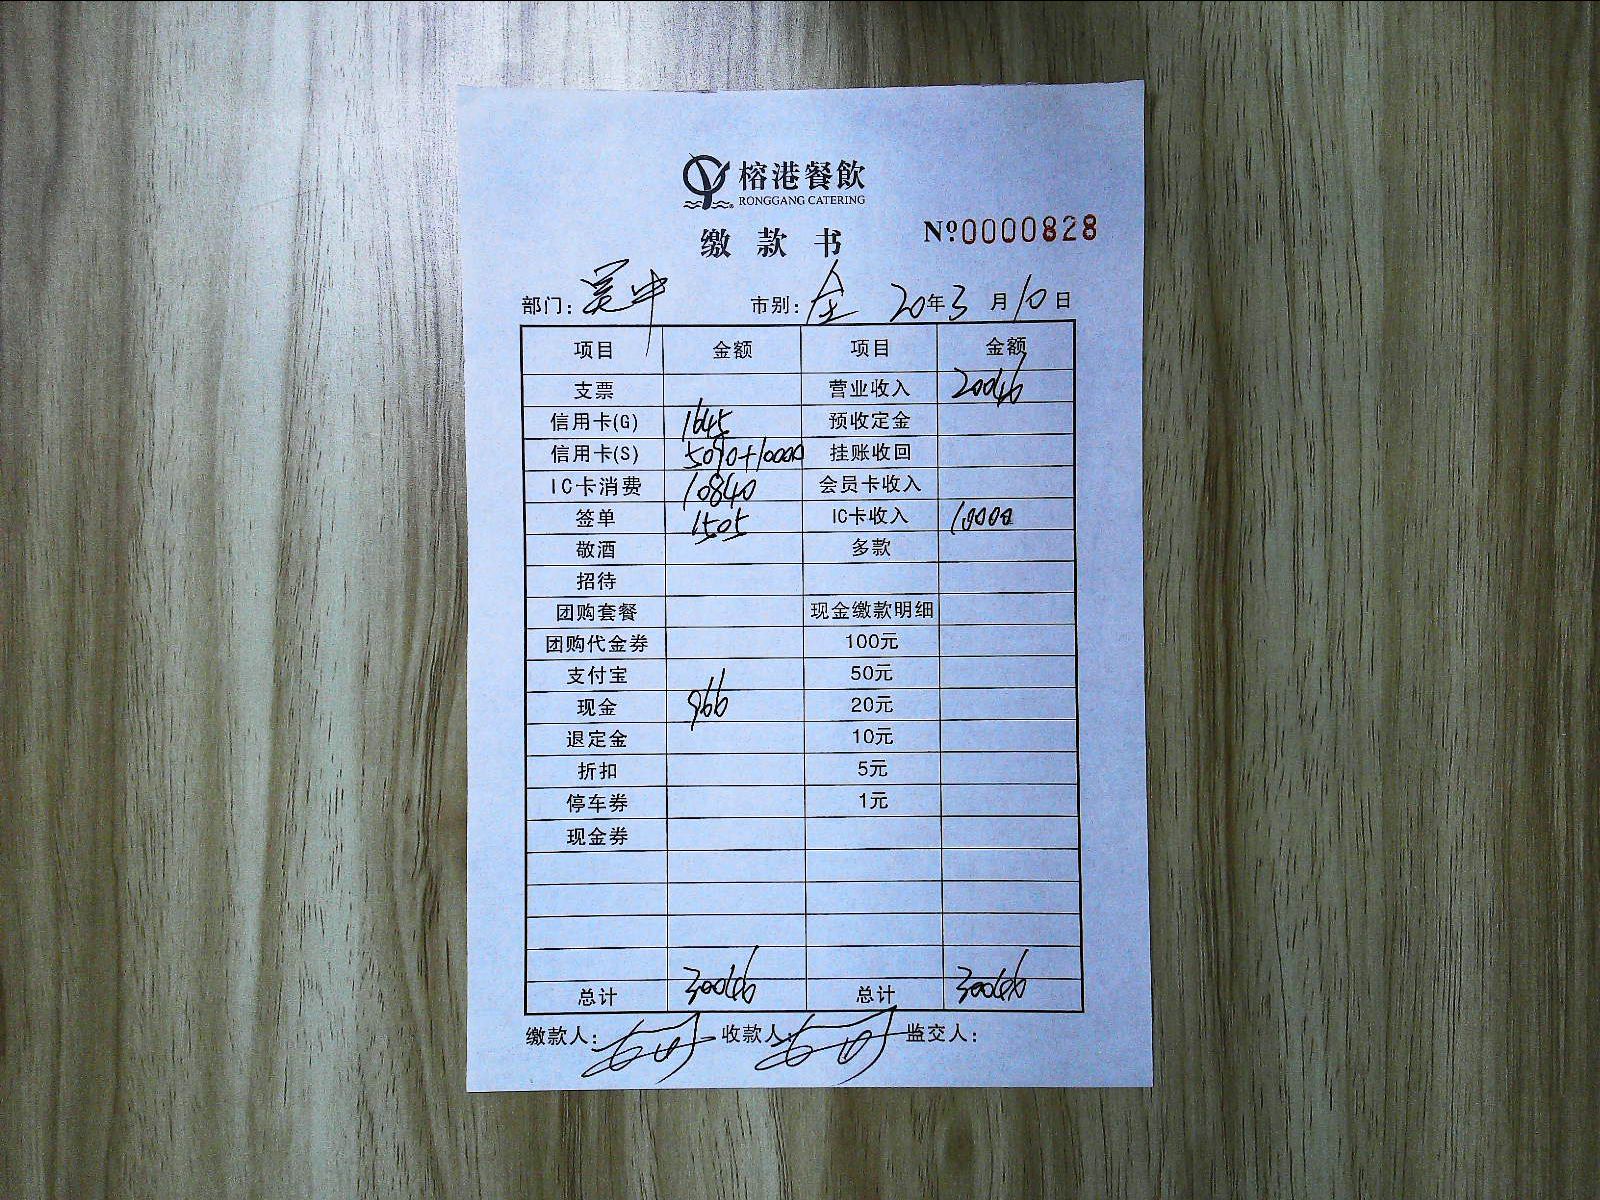 榕港餐飲
RONGGANG CATERING
缴款书
Nº0000828
部门: 吴中 市别: 全 20年3月10日
项目 金额 项目 金额
支票 营业收入 20046
信用卡(G) 1645 预收定金
信用卡(S) 5090+10000 挂账收回
IC卡消费 10840 会员卡收入
签单 1505 IC卡收入 10000
敬酒 多款
招待
团购套餐 现金缴款明细
团购代金券 100元
支付宝 50元
现金 966 20元
退定金 10元
折扣 5元
停车券 1元
现金券
总计 30046 总计 30046
缴款人: 收款人: 监交人: